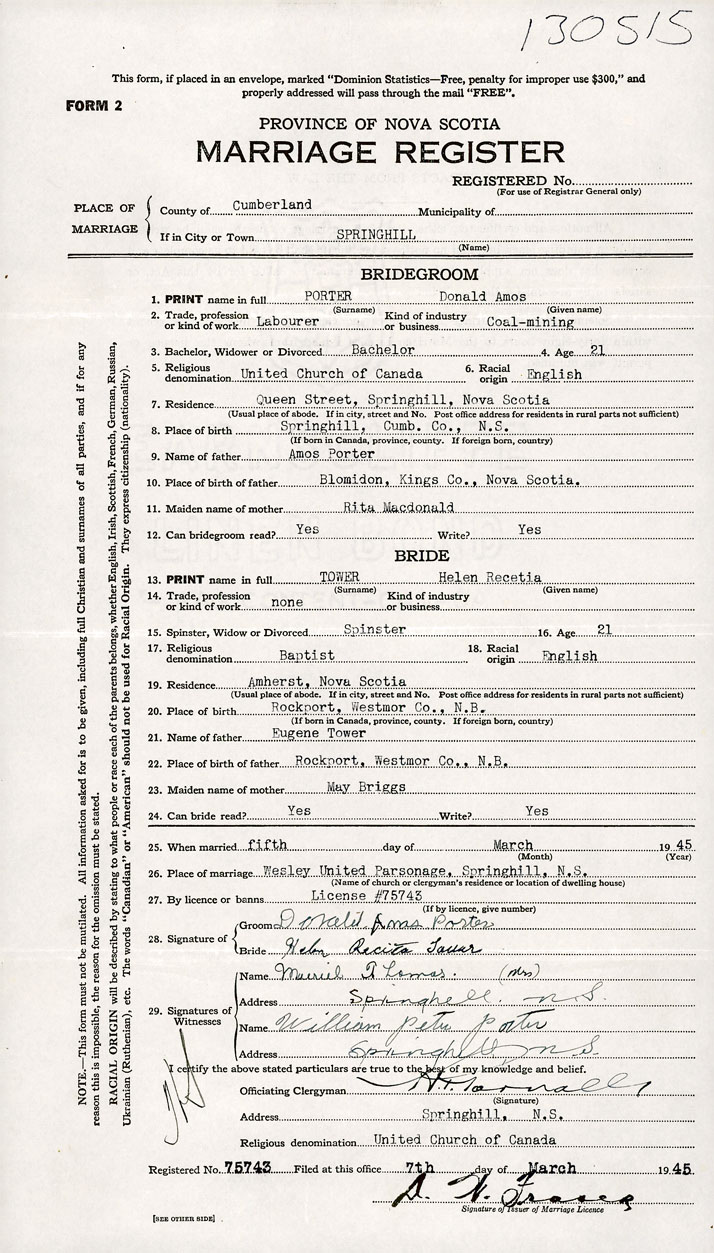 130515
This form, if placed in an envelope, marked "Dominion Statistics—Free, penalty for improper use $300," and
properly addressed will pass through the mail "FREE".
FORM 2
PROVINCE OF NOVA SCOTIA
MARRIAGE REGISTER
REGISTERED No.
(For use of Registrar General only)
PLACE OF MARRIAGE
County of Cumberland Municipality of
If in City or Town SPRINGHILL
(Name)
BRIDEGROOM
1. PRINT name in full PORTER Donald Amos
(Surname) (Given name)
2. Trade, profession or kind of work Labourer Kind of industry or business Coal-mining
3. Bachelor, Widower or Divorced Bachelor 4. Age 21
5. Religious denomination United Church of Canada 6. Racial origin English
7. Residence Queen Street, Springhill, Nova Scotia
(Usual place of abode. If in city, street and No. Post office address for residents in rural parts not sufficient)
8. Place of birth Springhill, Cumb. Co., N.S.
(If born in Canada, province, county. If foreign born, country)
9. Name of father Amos Porter
10. Place of birth of father Blomidon, Kings Co., Nova Scotia.
11. Maiden name of mother Rita Macdonald
12. Can bridegroom read? Yes Write? Yes
BRIDE
13. PRINT name in full TOWER Helen Recetia
(Surname) (Given name)
14. Trade, profession or kind of work none Kind of industry or business
15. Spinster, Widow or Divorced Spinster 16. Age 21
17. Religious denomination Baptist 18. Racial origin English
19. Residence Amherst, Nova Scotia
(Usual place of abode. If in city, street and No. Post office address for residents in rural parts not sufficient)
20. Place of birth Rockport, Westmor Co., N.B.
(If born in Canada, province, county. If foreign born, country)
21. Name of father Eugene Tower
22. Place of birth of father Rockport, Westmor Co., N.B.
23. Maiden name of mother May Briggs
24. Can bride read? Yes Write? Yes
25. When married fifth day of March 1945
(Month) (Year)
26. Place of marriage Wesley United Parsonage, Springhill, N.S.
(Name of church or clergyman's residence or location of dwelling house)
27. By licence or banns License #75743
(If by licence, give number)
28. Signature of
Groom Donald Amos Porter
Bride Helen Recita Tower
29. Signatures of Witnesses
Name Muriel Thomas. (Mrs)
Address Springhill. N.S.
Name William Peter Porter
Address Springhill, N.S.
I certify the above stated particulars are true to the best of my knowledge and belief.
Officiating Clergyman
(Signature)
Address Springhill, N.S.
Religious denomination United Church of Canada
Registered No. 75743 Filed at this office 7th day of March 1945
D. W. Fraser
Signature of Issuer of Marriage Licence
[SEE OTHER SIDE]
NOTE.—This form must not be mutilated. All information asked for is to be given, including full Christian and surnames of all parties, and if for any
reason this is impossible, the reason for the omission must be stated.
RACIAL ORIGIN will be described by stating to what people or race each of the parents belongs, whether English, Irish, Scottish, French, German, Russian,
Ukrainian (Ruthenian), etc. The words "Canadian" or "American" should not be used for Racial Origin. They express citizenship (nationality).